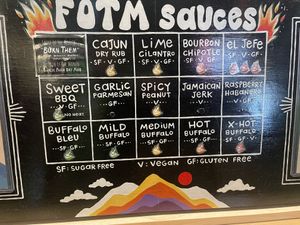 FOTM SAUCES
BORN THEM
CAJUN
DRY RUB
SF · V · GF
LIME
CILANTRO
·SF · GF·
BOURBON
CHIPOTLE
·V · GF·
EL JEFE
·SF · V · GF·
SWEET
BBQ
V · GF
NO HEAT
GARLIC
PARMESAN
·GF·
SPICY
PEANUT
·V·
JAMAICAN
JERK
·V·
RASPBERRY
HABANERO
·V · GF·
BUFFALO
BLEU
·SF · GF·
MILD
BUFFALO
·SF · GF·
MEDIUM
BUFFALO
·SF · GF·
HOT
BUFFALO
·SF · GF·
X-HOT
BUFFALO
·SF · GF·
SF: SUGAR FREE V: VEGAN GF: GLUTEN FREE